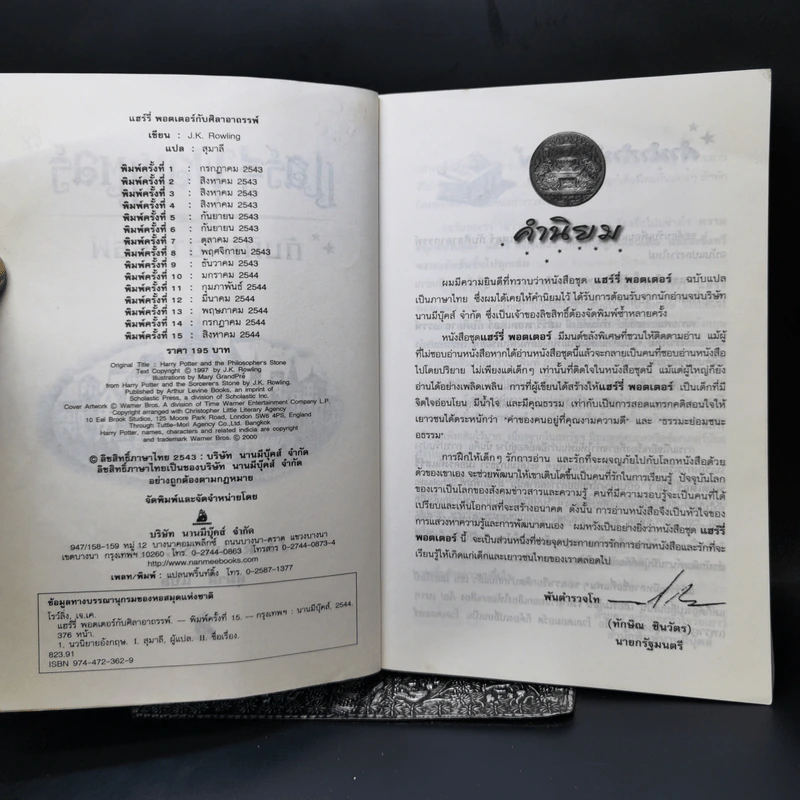 แฮร์รี่ พอตเตอร์กับศิลาอาถรรพ์
เขียน : J.K. Rowling
แปล : สุมาลี
พิมพ์ครั้งที่ 1 : กรกฎาคม 2543
พิมพ์ครั้งที่ 2 : สิงหาคม 2543
พิมพ์ครั้งที่ 3 : สิงหาคม 2543
พิมพ์ครั้งที่ 4 : สิงหาคม 2543
พิมพ์ครั้งที่ 5 : กันยายน 2543
พิมพ์ครั้งที่ 6 : กันยายน 2543
พิมพ์ครั้งที่ 7 : ตุลาคม 2543
พิมพ์ครั้งที่ 8 : พฤศจิกายน 2543
พิมพ์ครั้งที่ 9 : ธันวาคม 2543
พิมพ์ครั้งที่ 10 : มกราคม 2544
พิมพ์ครั้งที่ 11 : กุมภาพันธ์ 2544
พิมพ์ครั้งที่ 12 : มีนาคม 2544
พิมพ์ครั้งที่ 13 : พฤษภาคม 2544
พิมพ์ครั้งที่ 14 : กรกฎาคม 2544
พิมพ์ครั้งที่ 15 : สิงหาคม 2544
ราคา 195 บาท
Original Title : Harry Potter and the Philosopher's Stone
Text Copyright © 1997 by J.K. Rowling
Illustrations by Mary GrandPré
from Harry Potter and the Sorcerer's Stone by J.K. Rowling.
Published by Arthur Levine Books, an imprint of
Scholastic Press, a division of Scholastic Inc.
Cover Artwork © Warner Bros. A division of Time Warner Entertainment Company L.P.
Copyright arranged with Christopher Little Literary Agency
10 Eel Brook Studios, 125 Moore Park Road, London SW6 4PS, England
Through Tuttle-Mori Agency Co.,Ltd. Bangkok
Harry Potter, names, characters and related indicia are copyright
and trademark Warner Bros. © 2000
© ลิขสิทธิ์ภาษาไทย 2543 : บริษัท นานมีบุ๊คส์ จำกัด
ลิขสิทธิ์ภาษาไทยเป็นของบริษัท นานมีบุ๊คส์ จำกัด
อย่างถูกต้องตามกฎหมาย
จัดพิมพ์และจัดจำหน่ายโดย
บริษัท นานมีบุ๊คส์ จำกัด
947/158-159 หมู่ 12 บางนาคอมเพล็กซ์ ถนนบางนา-ตราด แขวงบางนา
เขตบางนา กรุงเทพฯ 10260 โทร. 0-2744-0863 โทรสาร 0-2744-0873-4
http://www.nanmeebooks.com
เพลท/พิมพ์ : แปลนพริ้นท์ติ้ง โทร. 0-2587-1377
ข้อมูลทางบรรณานุกรมของหอสมุดแห่งชาติ
โรว์ลิ่ง, เจ.เค.
แฮร์รี่ พอตเตอร์กับศิลาอาถรรพ์. – พิมพ์ครั้งที่ 15. – กรุงเทพฯ : นานมีบุ๊คส์, 2544.
376 หน้า.
1. นวนิยายอังกฤษ. I. สุมาลี, ผู้แปล. II. ชื่อเรื่อง.
823.91
ISBN 974-472-362-9
คำนิยม
ผมมีความยินดีที่ทราบว่าหนังสือชุด แฮร์รี่ พอตเตอร์ ฉบับแปล
เป็นภาษาไทย ซึ่งผมได้เคยให้คำนิยมไว้ ได้รับการต้อนรับจากนักอ่านจนบริษัท
นานมีบุ๊คส์ จำกัด ซึ่งเป็นเจ้าของลิขสิทธิ์ต้องจัดพิมพ์ซ้ำหลายครั้ง
หนังสือชุดแฮร์รี่ พอตเตอร์ มีมนต์ขลังพิเศษที่ชวนให้ติดตามอ่าน แม้ผู้
ที่ไม่ชอบอ่านหนังสือหากได้อ่านหนังสือชุดนี้แล้วจะกลายเป็นคนที่ชอบอ่านหนังสือ
ไปโดยปริยาย ไม่เพียงแต่เด็กๆ เท่านั้นที่ติดใจในหนังสือชุดนี้ แม้แต่ผู้ใหญ่ก็ยัง
อ่านได้อย่างเพลิดเพลิน การที่ผู้เขียนได้สร้างให้แฮร์รี่ พอตเตอร์ เป็นเด็กที่มี
จิตใจอ่อนโยน มีน้ำใจ และมีคุณธรรม เท่ากับเป็นการสอดแทรกคติสอนใจให้
เยาวชนได้ตระหนักว่า "ค่าของคนอยู่ที่คุณงามความดี" และ "ธรรมะย่อมชนะ
อธรรม"
การฝึกให้เด็กๆ รักการอ่าน และรักที่จะผจญภัยไปกับโลกหนังสือด้วย
ตัวของเขาเอง จะช่วยพัฒนาให้เขาเติบโตขึ้นเป็นคนที่รักในการเรียนรู้ ปัจจุบันโลก
ของเราเป็นโลกของสังคมข่าวสารและความรู้ คนที่มีความรอบรู้จะเป็นคนที่ได้
เปรียบและเห็นโอกาสที่จะสร้างอนาคต ดังนั้น การอ่านหนังสือจึงเป็นหัวใจของ
การแสวงหาความรู้และการพัฒนาตนเอง ผมหวังเป็นอย่างยิ่งว่าหนังสือชุด แฮร์รี่
พอตเตอร์ นี้ จะเป็นส่วนหนึ่งที่ช่วยจุดประกายการรักการอ่านหนังสือและรักที่จะ
เรียนรู้ให้เกิดแก่เด็กและเยาวชนไทยของเราตลอดไป
พันตำรวจโท
(ทักษิณ ชินวัตร)
นายกรัฐมนตรี